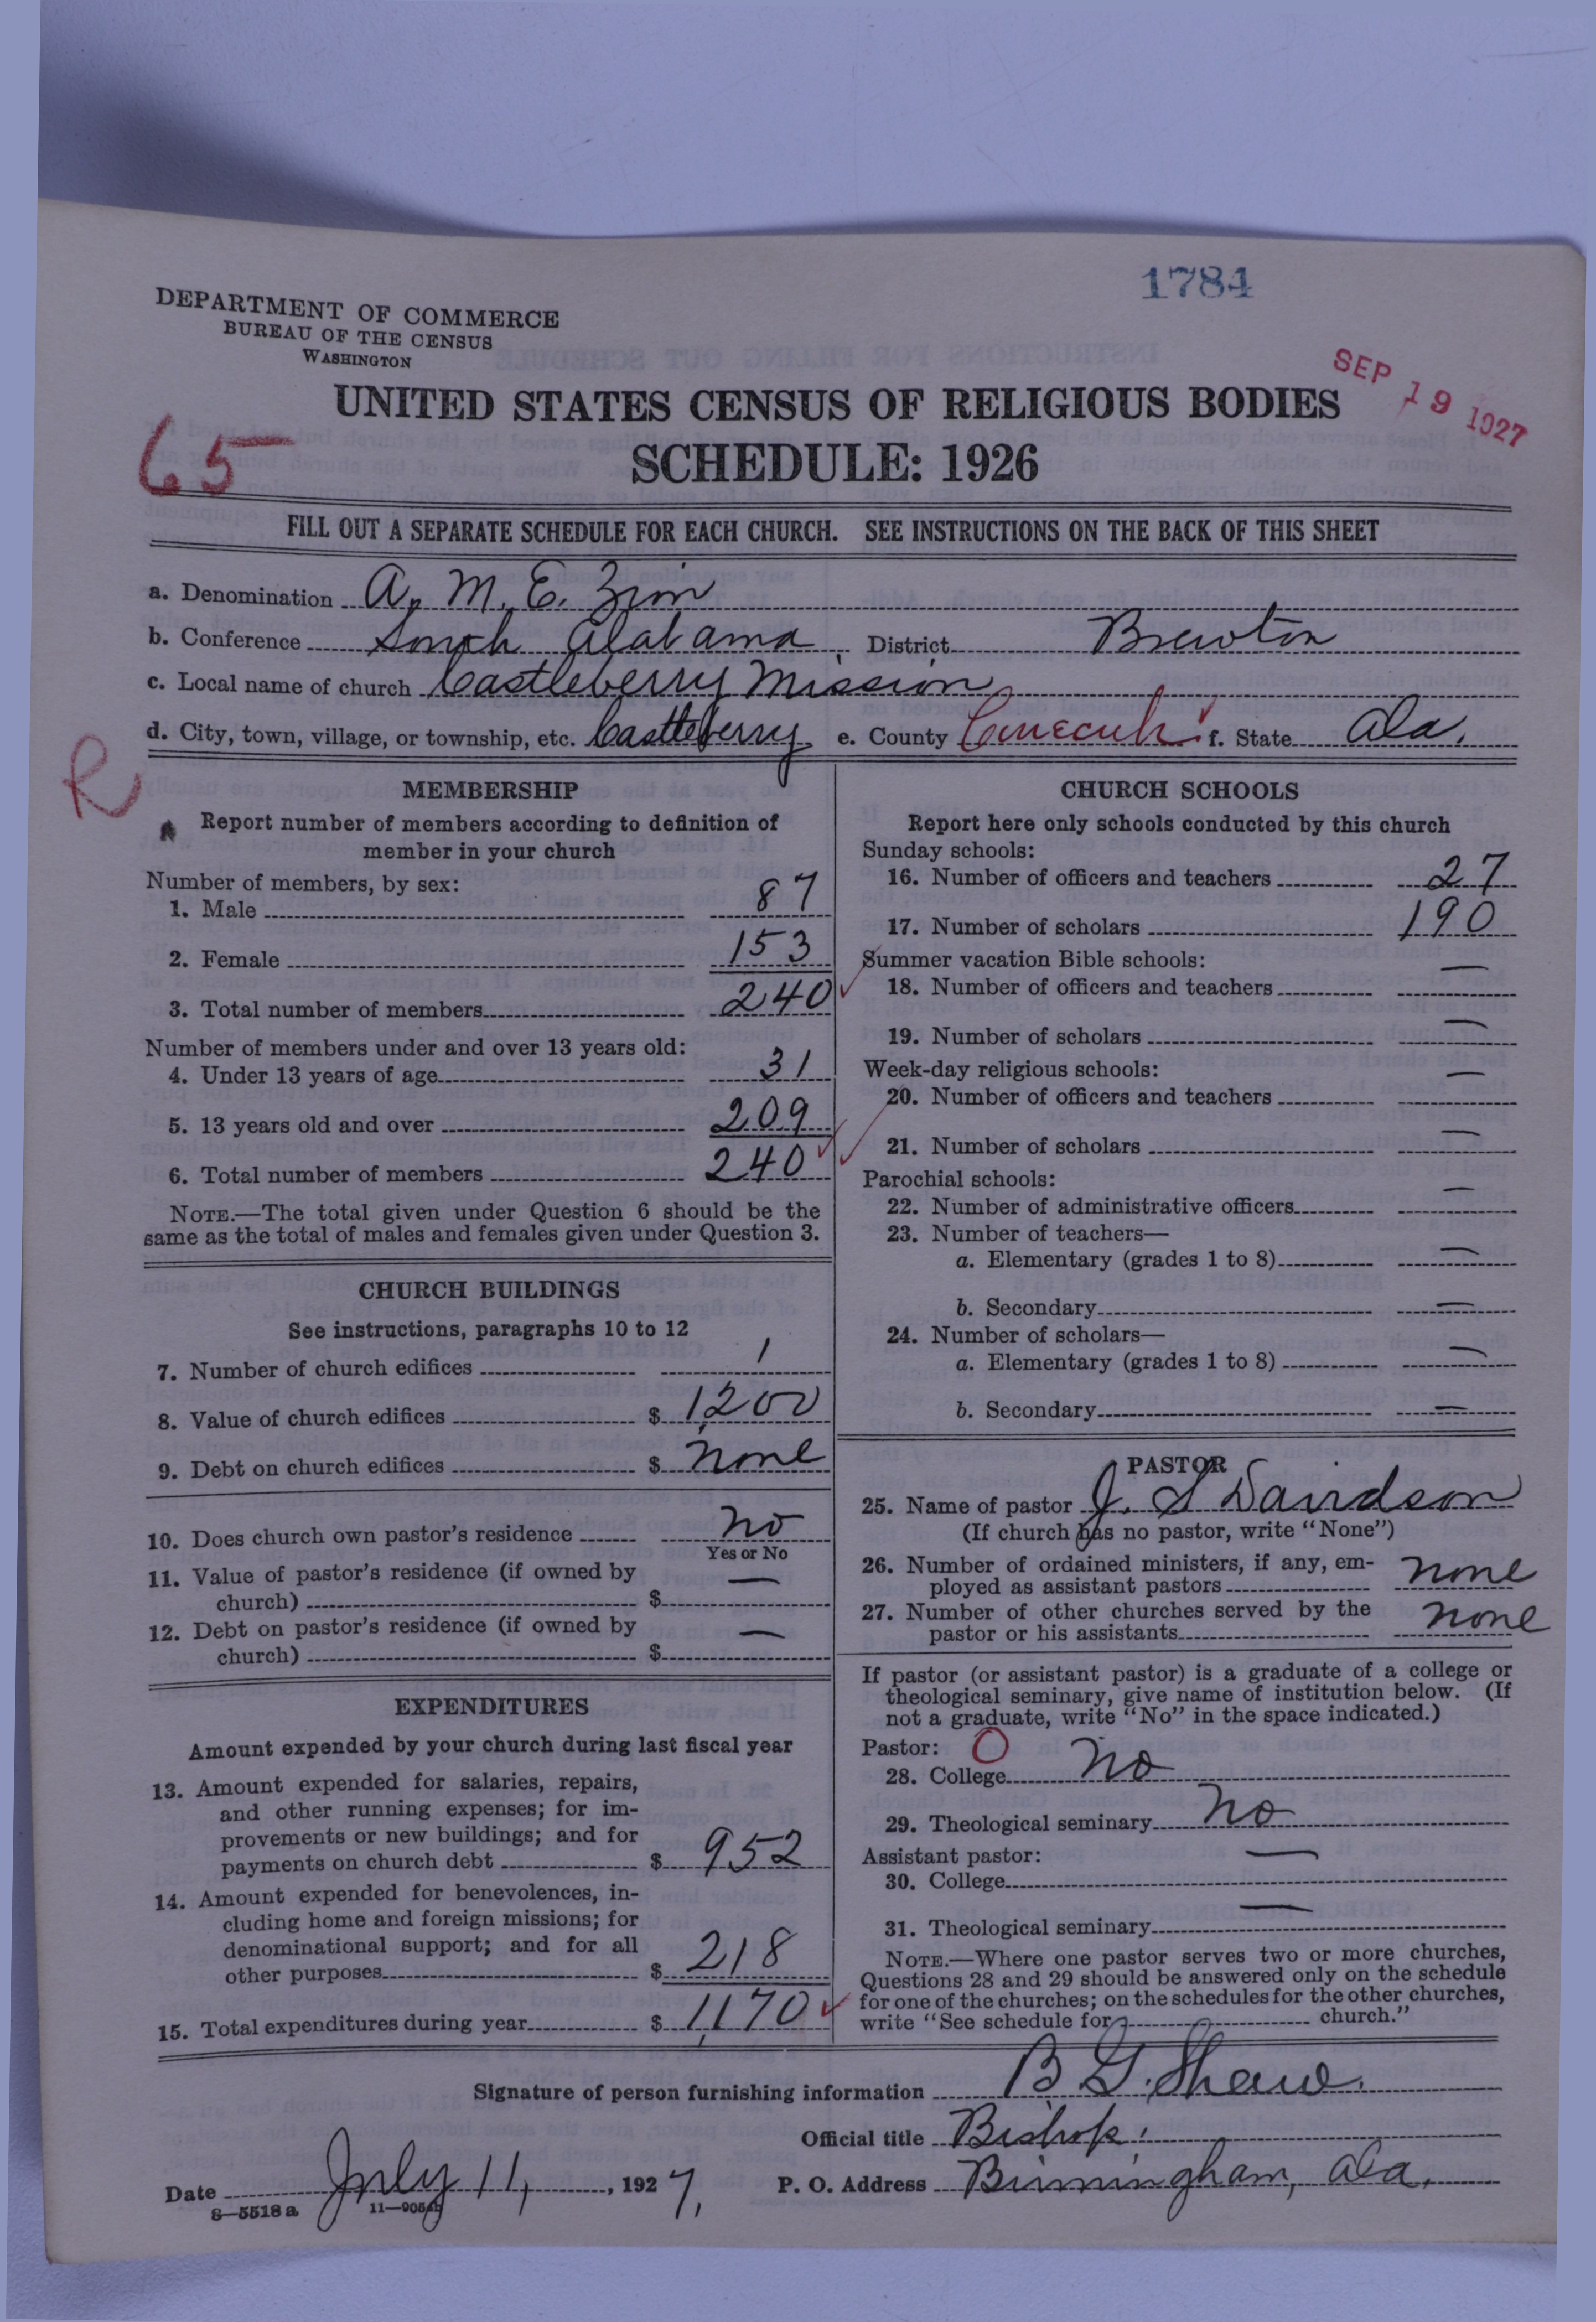 1784
DEPARTMENT OF COMMERCE
BUREAU OF THE CENSUS
WASHINGTON
SEP 19 1927
UNITED STATES CENSUS OF RELIGIOUS BODIES
65
SCHEDULE: 1926
FILL OUT A SEPARATE SCHEDULE FOR EACH CHURCH. SEE INSTRUCTIONS ON THE BACK OF THIS SHEET
a. Denomination A. M. E. Zion
b. Conference South Alabama District Brewton
c. Local name of church Castleberry Mission
d. City, town, village, or township, etc. Castleberry e. County Conecuh f. State Ala.
R
MEMBERSHIP
Report number of members according to definition of
member in your church
Number of members, by sex:
1. Male 87
2. Female 153
3. Total number of members 240
Number of members under and over 13 years old:
4. Under 13 years of age 31
5. 13 years old and over 209
6. Total number of members 240
NOTE.—The total given under Question 6 should be the
same as the total of males and females given under Question 3.
CHURCH BUILDINGS
See instructions, paragraphs 10 to 12
7. Number of church edifices 1
8. Value of church edifices $ 1,200
9. Debt on church edifices $ none
10. Does church own pastor's residence no
Yes or No
11. Value of pastor's residence (if owned by
church) $ —
12. Debt on pastor's residence (if owned by
church) $ —
EXPENDITURES
Amount expended by your church during last fiscal year
13. Amount expended for salaries, repairs,
and other running expenses; for im-
provements or new buildings; and for
payments on church debt $ 952
14. Amount expended for benevolences, in-
cluding home and foreign missions; for
denominational support; and for all
other purposes $ 218
15. Total expenditures during year $ 1,170
CHURCH SCHOOLS
Report here only schools conducted by this church
Sunday schools:
16. Number of officers and teachers 27
17. Number of scholars 190
Summer vacation Bible schools:
18. Number of officers and teachers —
19. Number of scholars —
Week-day religious schools:
20. Number of officers and teachers —
21. Number of scholars —
Parochial schools:
22. Number of administrative officers —
23. Number of teachers—
a. Elementary (grades 1 to 8) —
b. Secondary —
24. Number of scholars—
a. Elementary (grades 1 to 8) —
b. Secondary —
PASTOR
25. Name of pastor J. S Davidson
(If church has no pastor, write "None")
26. Number of ordained ministers, if any, em-
ployed as assistant pastors none
27. Number of other churches served by the
pastor or his assistants none
If pastor (or assistant pastor) is a graduate of a college or
theological seminary, give name of institution below. (If
not a graduate, write "No" in the space indicated.)
Pastor: O
28. College No
29. Theological seminary No
Assistant pastor:
30. College —
31. Theological seminary —
NOTE.—Where one pastor serves two or more churches,
Questions 28 and 29 should be answered only on the schedule
for one of the churches; on the schedules for the other churches,
write "See schedule for church."
Signature of person furnishing information B G. Shaw.
Official title Bishop.
Date July 11, 1927, P. O. Address Birmingham, Ala.
8—5518 a 11—9054b